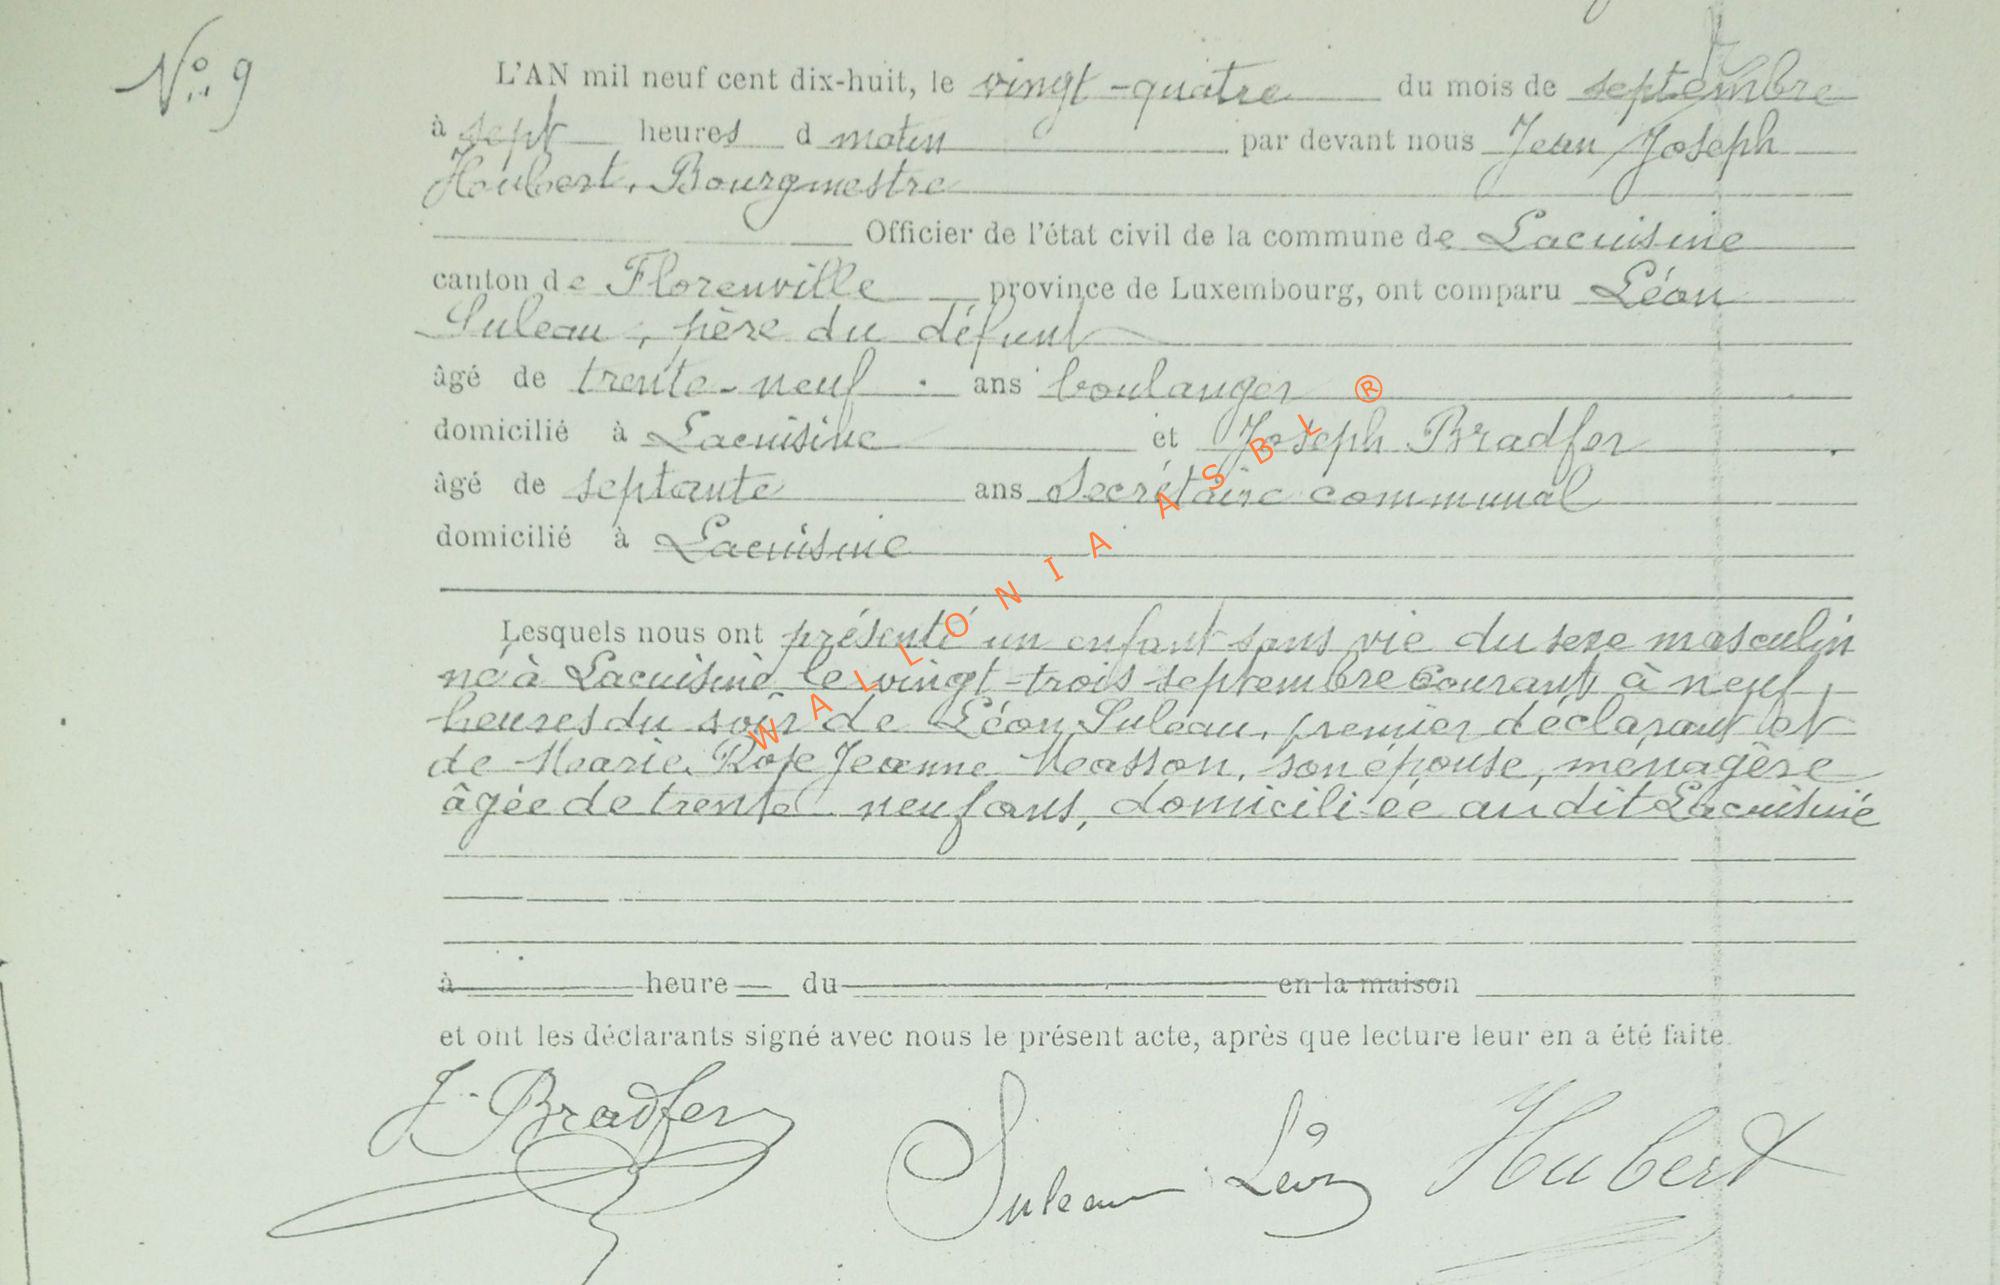 N° 9
L'AN mil neuf cent dix-huit, le vingt-quatre du mois de septembre
à sept heures d matin par devant nous Jean Joseph
Houbert, Bourgmestre
Officier de l'état civil de la commune de Lacuisine
canton de Florenville province de Luxembourg, ont comparu Léon
Suleau, père du défunt
âgé de trente-neuf ans boulanger
domicilié à Lacuisine et Joseph Bradfer
âgé de septante ans Secrétaire communal
domicilié à Lacuisine
Lesquels nous ont présenté un enfant sans vie du sexe masculin
né à Lacuisine le vingt-trois septembre courant à neuf
heures du soir de Léon Suleau, premier déclarant et
de Marie Rose Jeanne Masson, son épouse, ménagère
âgée de trente neuf ans, domiciliée au dit Lacuisine
à heure du en la maison
et ont les déclarants signé avec nous le présent acte, après que lecture leur en a été faite.
J. Bradfer Suleau Léon Hubert
WALLONIA ASBL ®